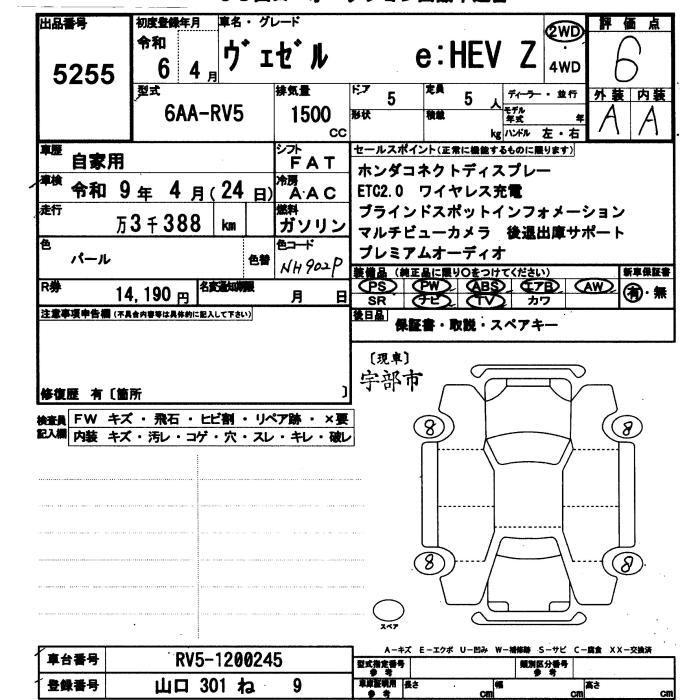 出品番号
5255
初度登録年月
令和
6 4月
車名・グレード
ヴェゼル e:HEV Z
2WD
・
4WD
評価点
6
外装 内装
A A
型式
6AA-RV5
排気量
1500
CC
ドア
5
定員
5 人
形状
積載
kg
ディーラー・並行
モデル年式 年
ハンドル 左・右
車歴
自家用
シフト
FAT
車検
令和 9年 4月(24日)
冷房
AAC
走行
万3千388 km
燃料
ガソリン
色
パール
色替
色コード
NH902P
R券
14,190円
名変通知期限
月 日
セールスポイント(正常に機能するものに限ります)
ホンダコネクトディスプレー
ETC2.0 ワイヤレス充電
ブラインドスポットインフォメーション
マルチビューカメラ 後退出庫サポート
プレミアムオーディオ
装備品(純正品に限り○をつけてください)
PS PW ABS エアB AW
SR ナビ TV カワ
新車保証書
有・無
後日品
保証書・取説・スペアキー
注意事項申告欄(不具合内容等は具体的に記入して下さい)
修復歴 有〔箇所 〕
検査員記入欄
FW キズ・飛石・ヒビ割・リペア跡・×要
内装 キズ・汚レ・コゲ・穴・スレ・キレ・破レ
〔現車〕
宇部市
8 8
8 8
スペア
A-キズ E-エクボ U-凹み W-補修跡 S-サビ C-腐食 XX-交換済
車台番号
RV5-1200245
登録番号
山口 301 ね 9
型式指定番号
参考
類別区分番号
参考
車庫証明用
参考
長さ cm
幅 cm
高さ cm